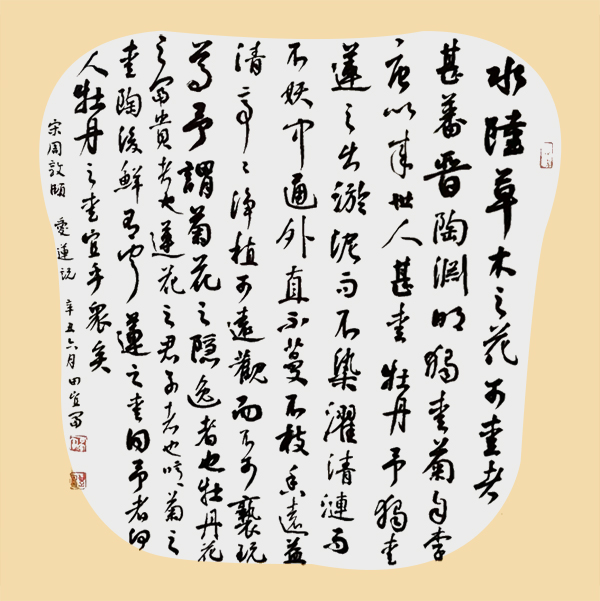 水陸草木之花可愛者
甚蕃晋陶淵明獨愛菊自李
唐以来世人甚愛牡丹予獨愛
蓮之出淤泥而不染濯清漣而
不妖中通外直不蔓不枝香遠益
清亭〻淨植可遠觀而不可褻玩
焉予謂菊花之隱逸者也牡丹花
之富貴者也蓮花之君子者也噫菊之
愛陶後鮮有聞蓮之愛同予者何
人牡丹之愛宜乎眾矣
宋周敦頤 愛蓮說 辛丑六月田宜